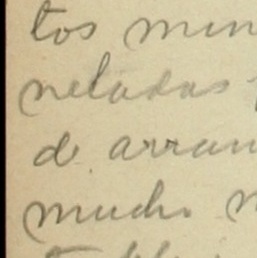 tos min
neladas
de arran
mucho m